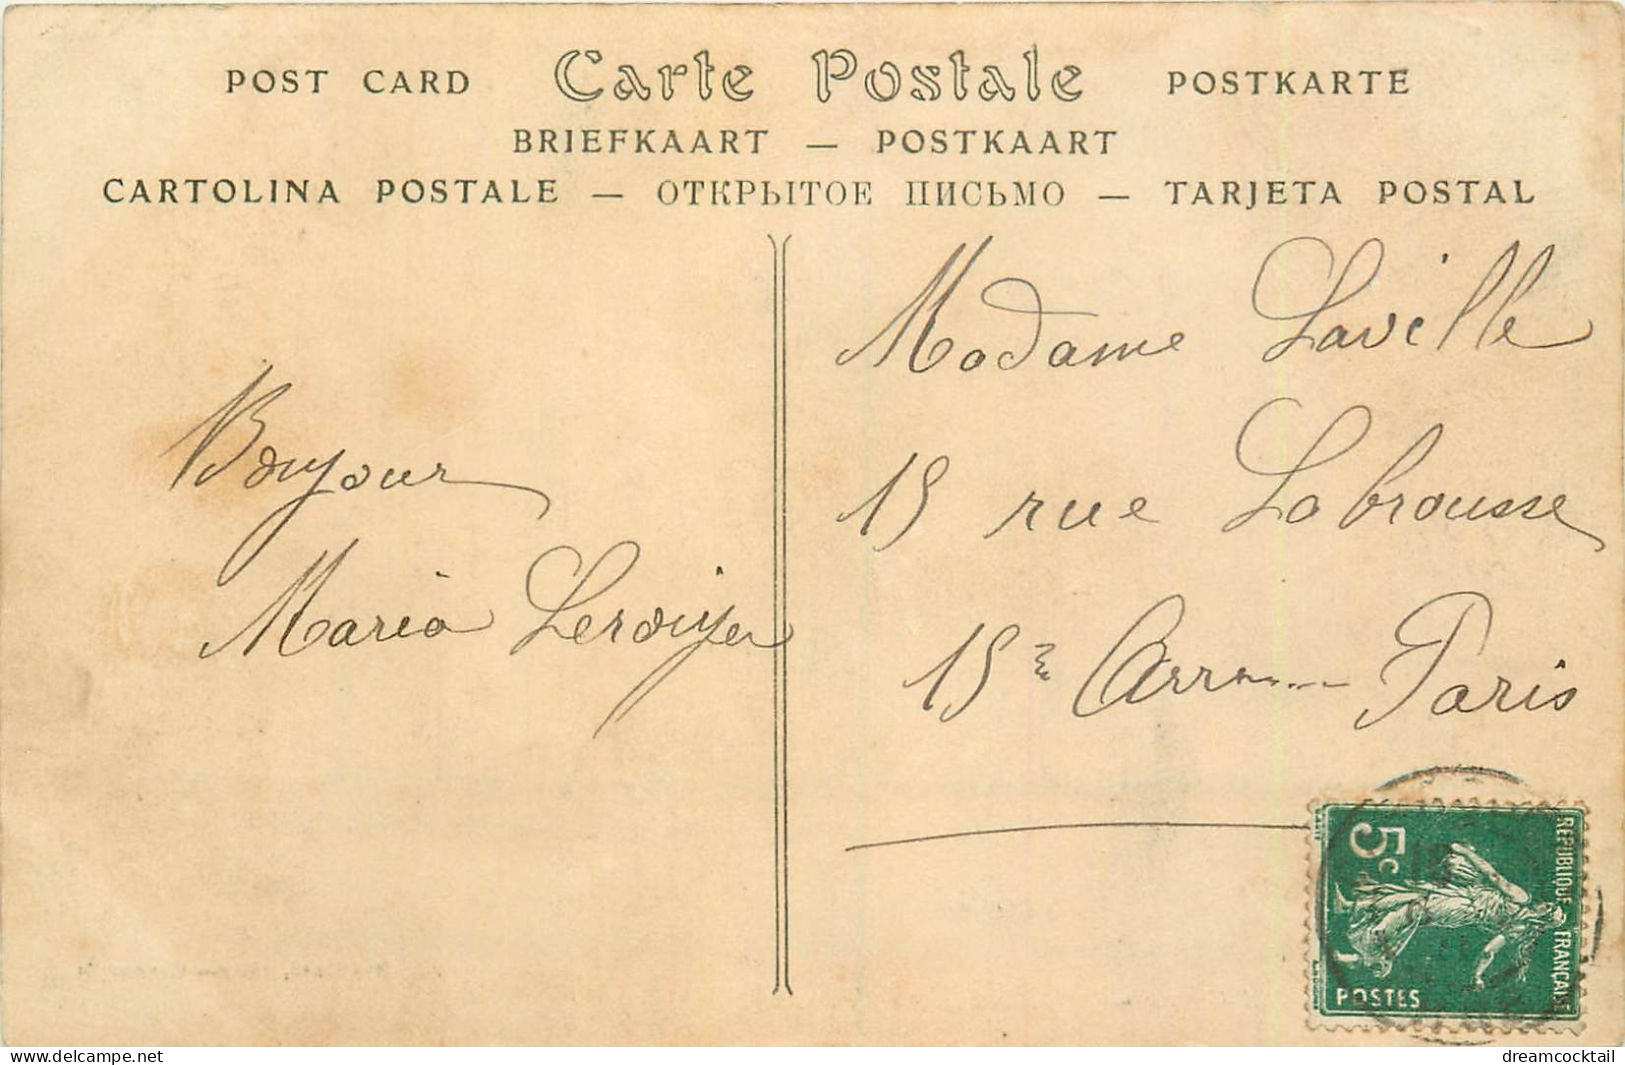 POST CARD Carte Postale POSTKARTE
BRIEFKAART — POSTKAART
CARTOLINA POSTALE — ОТКРЫТОЕ ПИСЬМО — TARJETA POSTAL
Bonjour
Maria Leroiyer
Madame Laville
15 rue Labrousse
15e Arr Paris
5c
REPUBLIQUE FRANÇAISE
POSTES
dreamcocktail